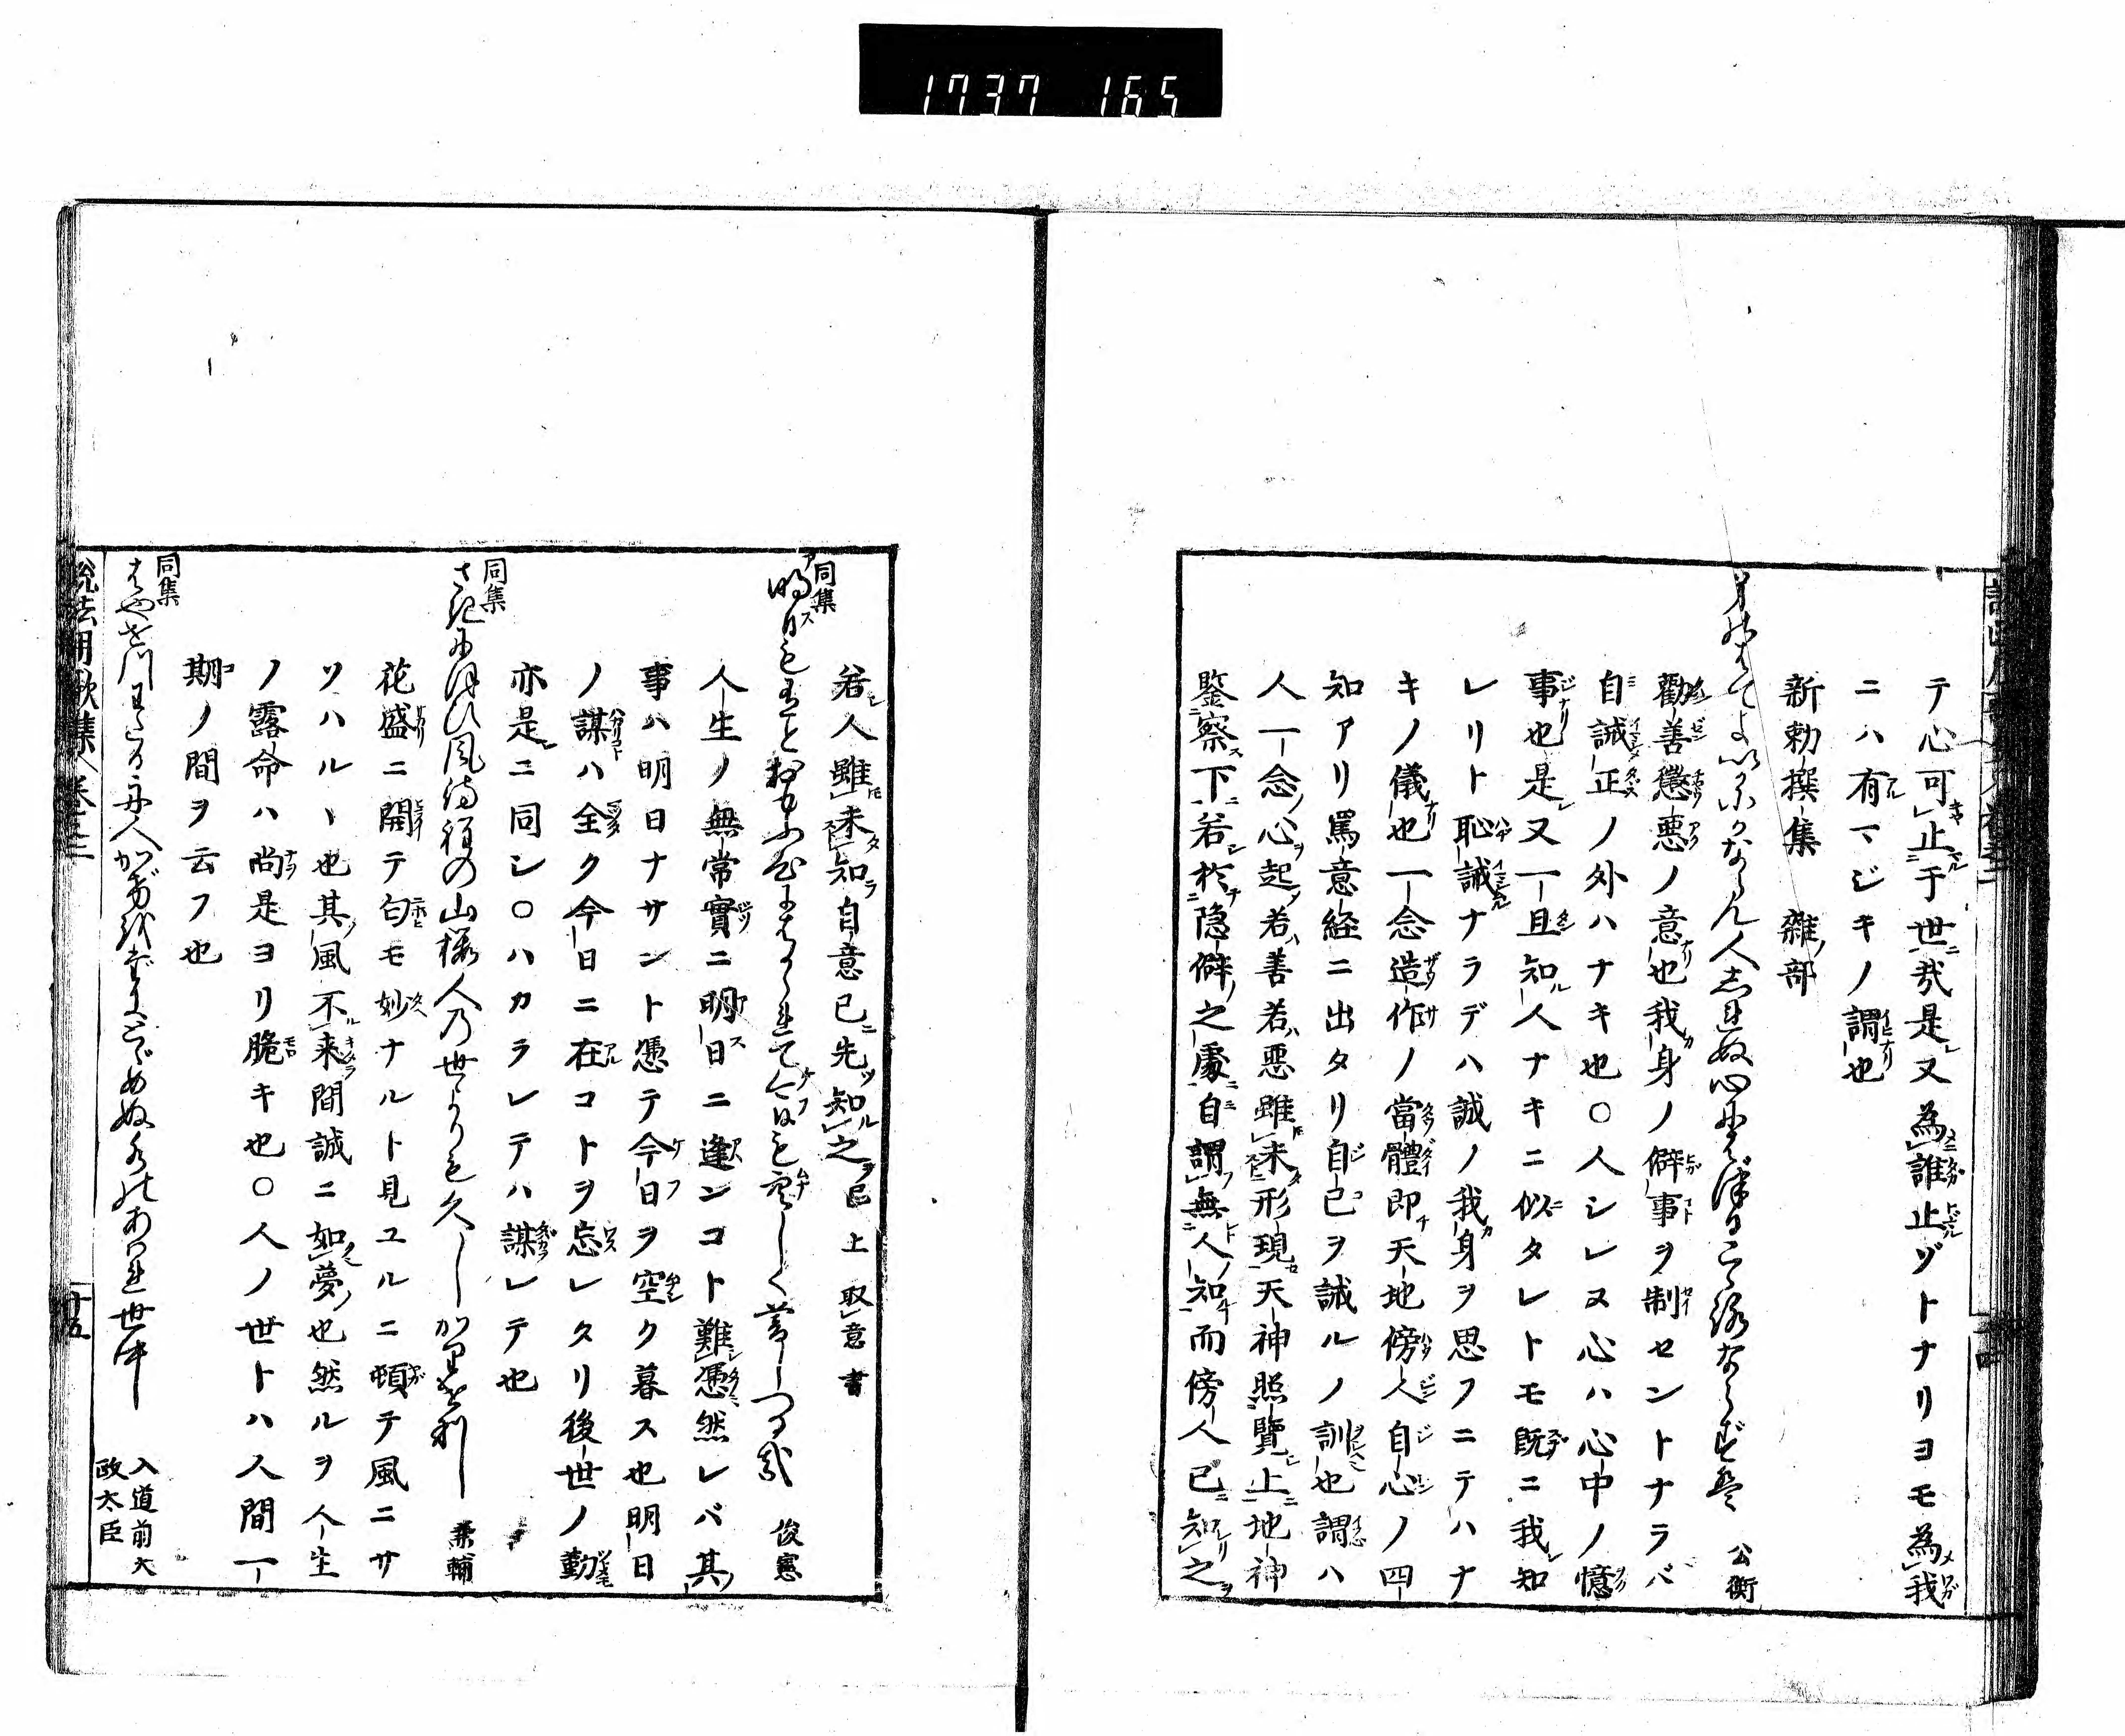 1737 165
テ心可止于世哉是又為誰止ゾトナリヨモ為我
ニハ有マジキノ謂也
新勅撰集 雑部
公衡
勸善懲悪ノ意也我身ノ僻事ヲ制セントナラバ
自誡正ノ外ハナキ也○人シレヌ心ハ心中ノ憶
事也是又一旦知人ナキニ似タレトモ既ニ我知
レリト恥誡ナラデハ誠ノ我身ヲ思フニテハナ
キノ儀也一念造作ノ當體即天地傍人自心ノ四
知アリ罵意経ニ出タリ自已ヲ誡ルノ訓也謂ハ
人一念心起若善若悪雖未形現天神照覽上地神
鑒察下若於隠僻之處自謂無人知而傍人已知之
若人雖未知自意已先知之已上取意書
同集
明日もありとおもふ心にはかられて今日を空しく暮しつる哉 俊憲
人生ノ無常實ニ明日ニ逢ンコト難憑然レバ其
事ハ明日ナサント憑テ今日ヲ空ク暮ス也明日
ノ謀ハ全ク今日ニ在コトヲ忘レタリ後世ノ勤
亦是ニ同シ○ハカラレテハ謀レテ也
同集
さきにほひ風待程の山櫻人乃世よりも久しかりけり 兼輔
花盛ニ開テ匂モ妙ナルト見ユルニ頓テ風ニサ
ソハルヽ也其風不来間誠ニ如夢也然ルヲ人生
ノ露命ハ尚是ヨリ脆キ也○人ノ世トハ人間一
期ノ間ヲ云フ也
同集
入道前太
政太臣
説法用歌集 巻三
廿五